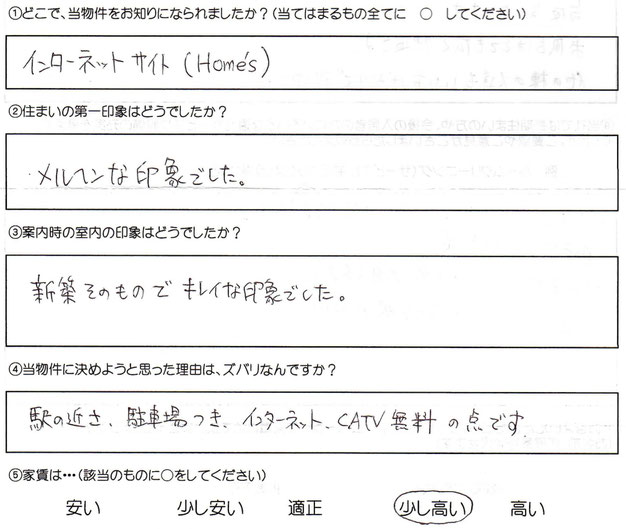 ①どこで、当物件をお知りになられましたか？(当てはまるもの全てに ○ してください)
インターネットサイト (Home's)
②住まいの第一印象はどうでしたか？
・メルヘンな印象でした。
③案内時の室内の印象はどうでしたか？
新築そのもので キレイな印象でした。
④当物件に決めようと思った理由は、ズバリなんですか？
駅の近さ、駐車場つき、インターネット、CATV無料の点です
⑤家賃は…(該当のものに○をしてください)
安い 少し安い 適正 少し高い 高い